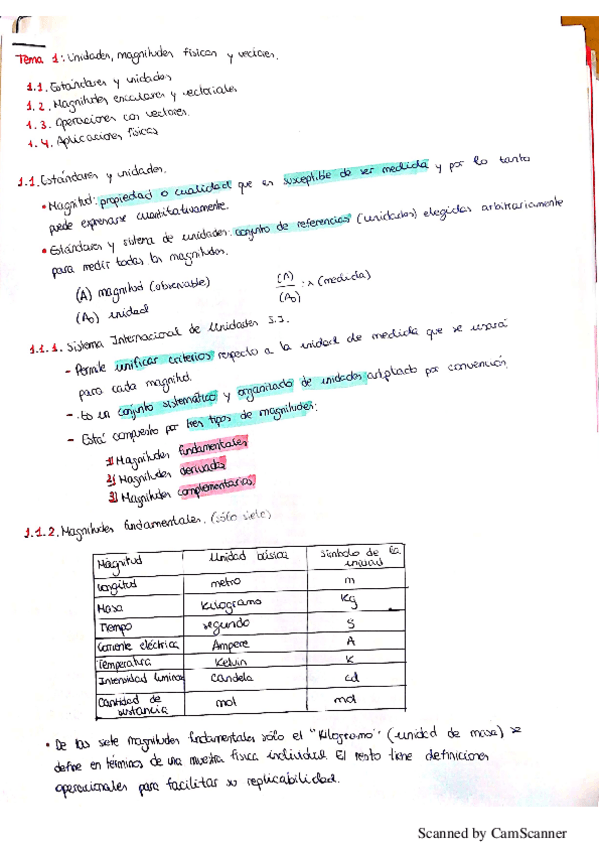 Tema 1: Unidades, magnitudes físicas y vectores.
1.1. Estándares y unidades
1.2. Magnitudes escalares y vectoriales
1.3. Operaciones con vectores.
1.4. Aplicaciones físicas
1.1. Estándares y unidades.
• Magnitud: propiedad o cualidad que es susceptible de ser medida y por lo tanto
puede expresarse cuantitativamente.
• Estándares y sistema de unidades: conjunto de referencias (unidades) elegidas arbitrariamente
para medir todas las magnitudes.
(A) magnitud (observable)
(A₀) unidad
(A)
(A₀)
: x (medida)
1.1.1. Sistema Internacional de Unidades S.I.
- Permite unificar criterios respecto a la unidad de medida que se usará
para cada magnitud.
- Es un conjunto sistemático y organizado de unidades adoptado por convención.
- Está compuesto por tres tipos de magnitudes:
1) Magnitudes fundamentales
2) Magnitudes derivadas
3) Magnitudes complementarias
1.1.2. Magnitudes fundamentales. (sólo siete)
Magnitud Unidad básica Símbolo de la unidad
Longitud metro m
Masa Kilogramo Kg
Tiempo segundo s
Corriente eléctrica Ampere A
Temperatura Kelvin K
Intensidad luminosa candela cd
Cantidad de sustancia mol mol
• De las siete magnitudes fundamentales sólo el "Kilogramo" (unidad de masa) se
define en términos de una muestra física individual. El resto tiene definiciones
operacionales para facilitar su replicabilidad.
Scanned by CamScanner